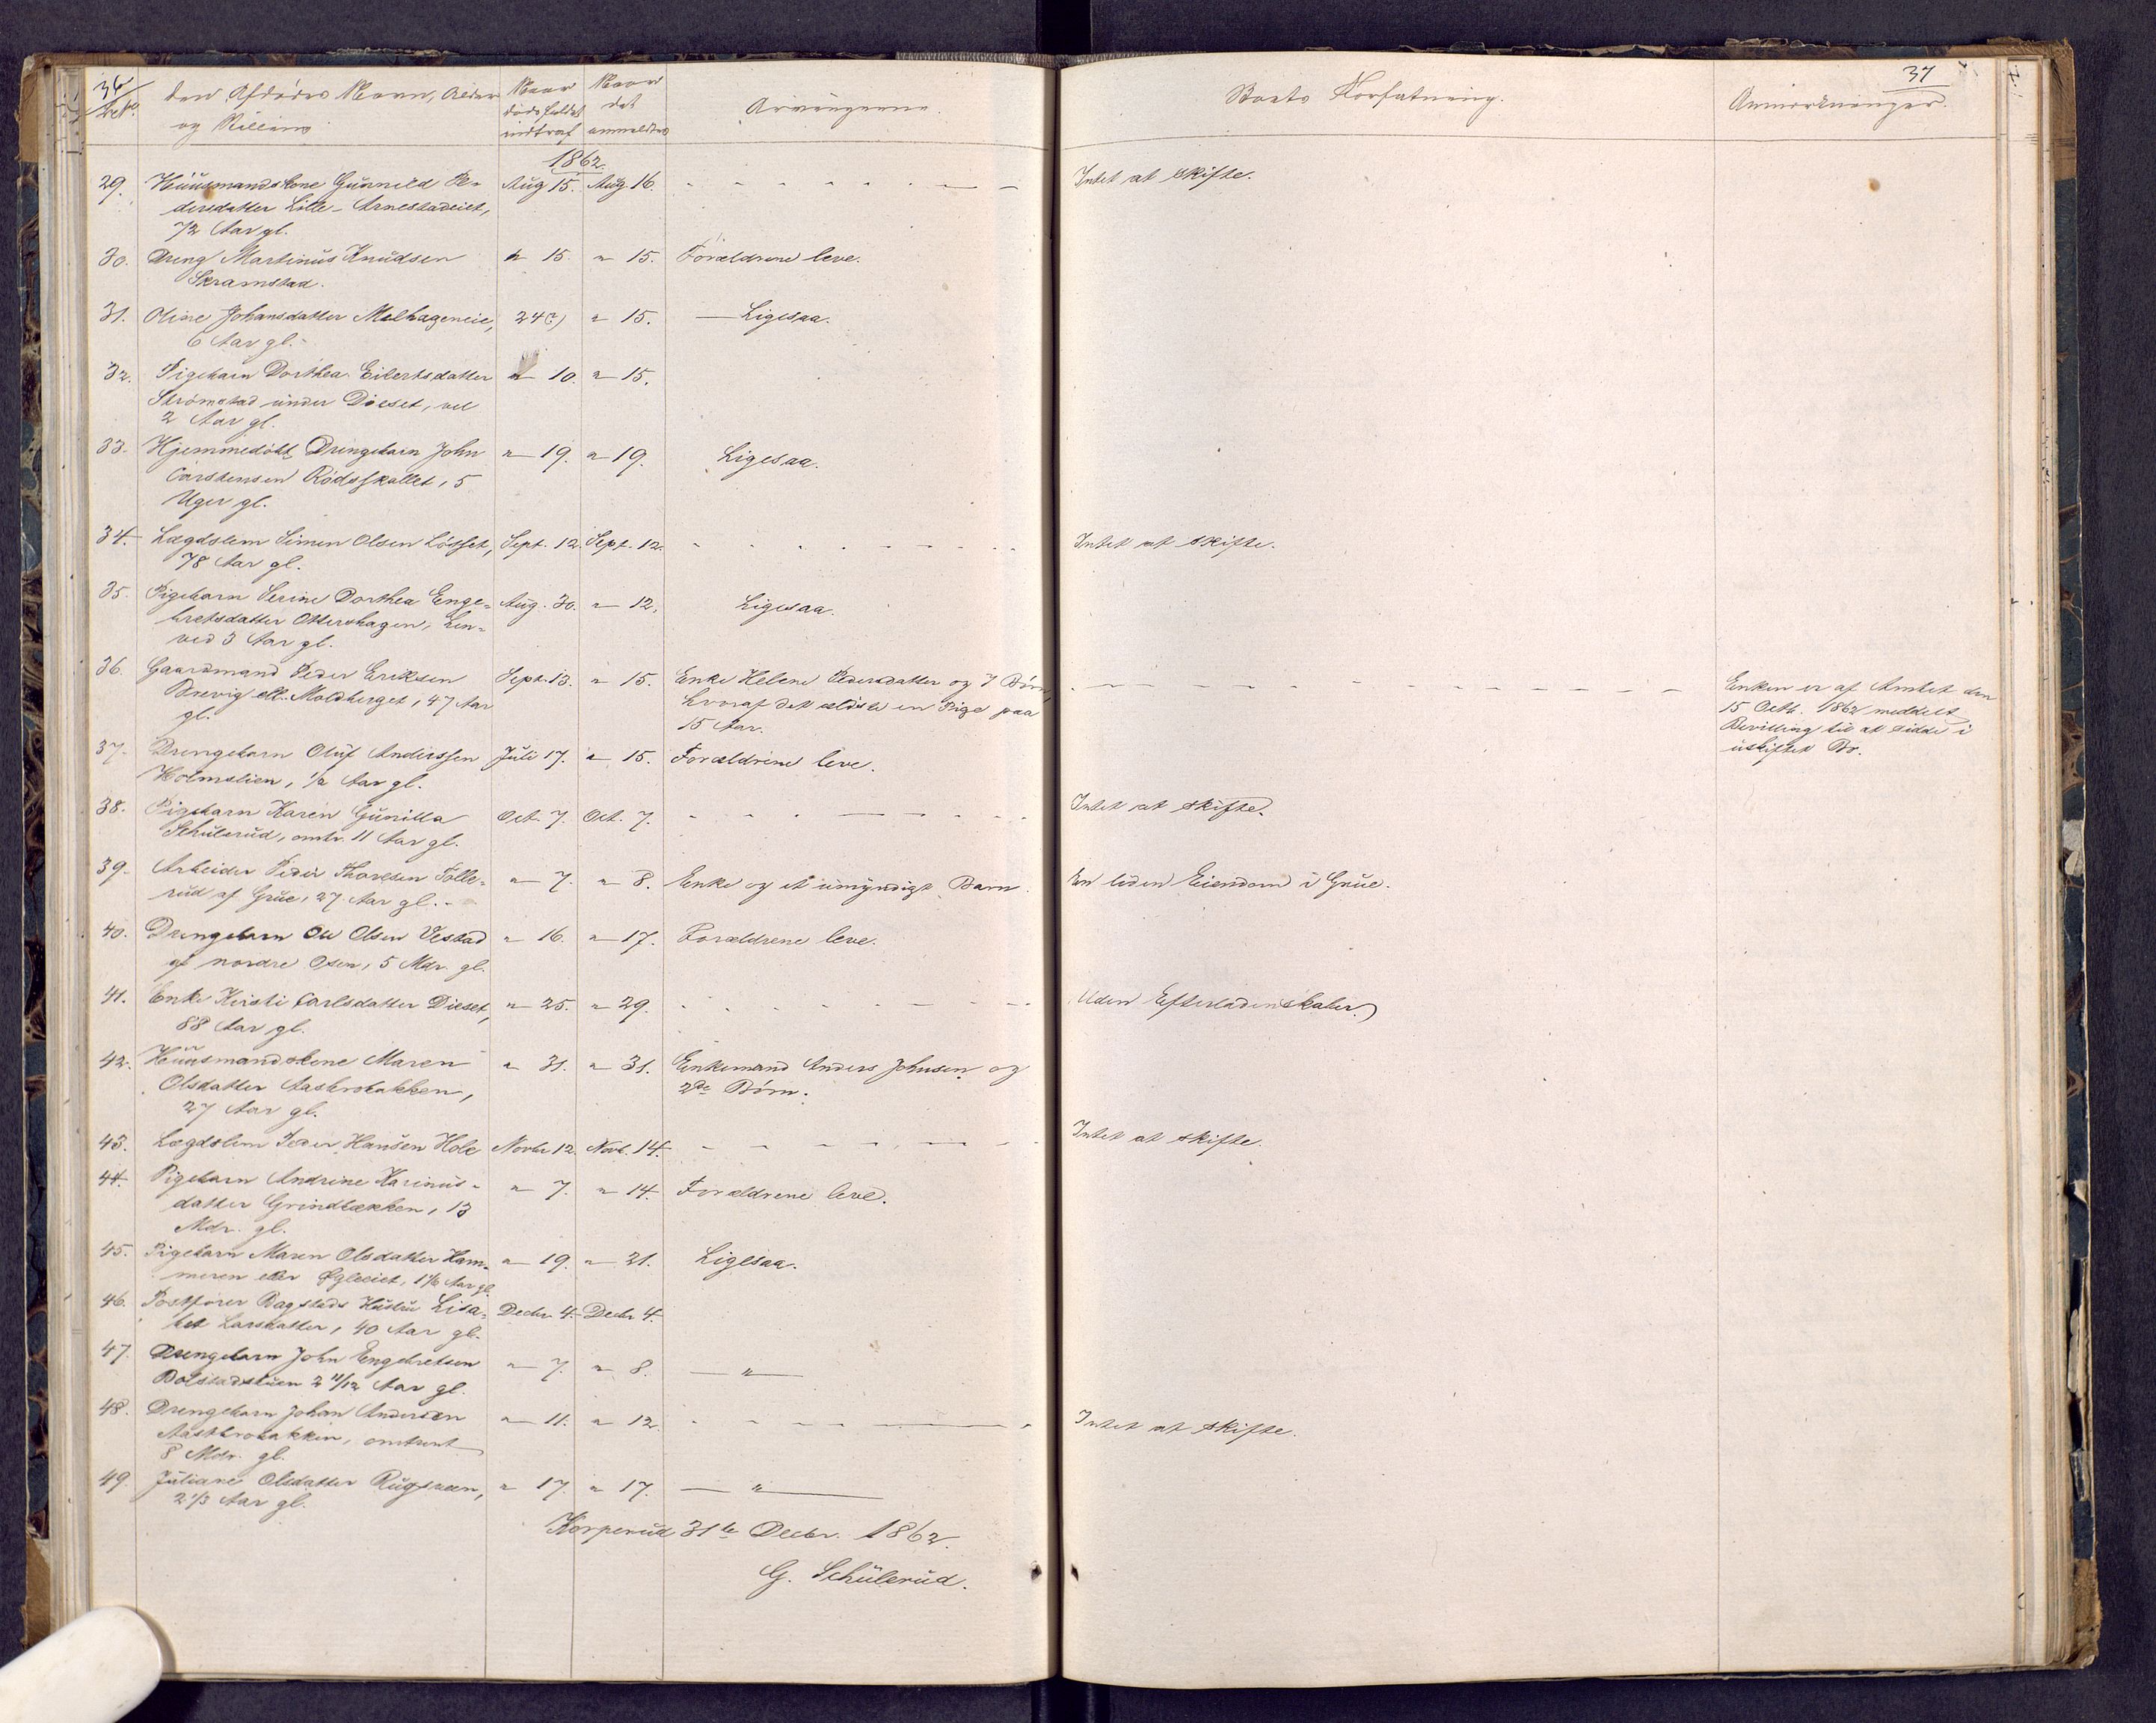 36
37
Den Afdødes Navn, Alder
og Stilling
Naar
dødsfaldet
indtraf
Naar
det
anmeldtes
Arvingerne
Boets Forfatning.
Anmærkninger.
1862.
29. Huusmandskone Gunnild Pe- Aug 15. Aug 16. Intet at skifte.
dersdatter Lille-Arnestadeiet,
72 Aar gl.
30. Dreng Martinus Knudsen " 15. " 15. Forældrene leve.
Skramstad.
31. Oline Johansdatter Melhageneie, 24(?) " 15. Ligesaa.
6 Aar gl.
32. Pigebarn Dorthea Eilertsdatter " 10. " 15.
Strømstad under Dieset, vel
2 Aar gl.
33. Hjemmedøbt Drengebarn John " 19. " 19. Ligesaa.
Carstensen Rødsskallet, 5
Uger gl.
34. Lægdslem Simen Olsen Løsset, Sept. 12. Sept. 12. Intet at skifte.
78 Aar gl.
35. Pigebarn Serine Dorthea Enge- Aug. 30. " 12. Ligesaa.
bretsdatter Ottershagen, hen-
ved 3 Aar gl.
36. Gaardmand Peder Eriksen Sept. 13. " 15. Enke Helene Pedersdatter og 7 Børn, Enken er af Amtet den
Brevig ell. Moldberget, 47 Aar hvoraf det ældste en Pige paa 15 Octb. 1862 meddelt
gl. 15 Aar. Bevilling til at sidde i
uskiftet Bo.
37. Drengebarn Oluf Anderssen Juli 17. " 15. Forældrene leve.
Holmslien, 1/2 Aar gl.
38. Pigebarn Karen Gunilla Oct. 7. Oct. 7. Intet at skifte.
Schulerud, omtr. 11 Aar gl.
39. Arbeider Peder Thoresen Tolle- " 7. " 8. Enke og et umyndigt Barn. En liden Eiendom i Grue.
rud af Grue, 27 Aar gl.
40. Drengebarn Ole Olsen Vestad " 16. " 17. Forældrene leve.
af nordre Osen, 5 Mdr. gl.
41. Enke Kirsti Carlsdatter Dieset, " 25. " 29. Uden Efterladenskaber.
88 Aar gl.
42. Huusmandskone Maren " 31. " 31. Enkemand Anders Johnsen og
Olsdatter Aastrobakken, 2de Børn.
27 Aar gl.
43. Lægdslem Peder Hansen Hole Novbr 12. Novb. 14. Intet at skifte.
44. Pigebarn Andrine Karinus- " 7. " 14. Forældrene leve.
datter Grindbækken, 13
Mdr. gl.
45. Pigebarn Maren Olsdatter Ham- " 19. " 21. Ligesaa.
meren eller Ygleeiet, 1 1/6 Aar gl.
46. Postfører Bagstads Hustru Lisa- Decbr. 4. Decbr 4.
bet Larsdatter, 40 Aar gl.
47. Drengebarn John Engebretsen " 7. " 8. "
Bolstadstuen 2 11/12 Aar gl.
48. Drengebarn Johan Andersen " 11. " 12. Intet at skifte.
Aastbrobakken, omtrent
8 Mdr. gl.
49. Juliane Olsdatter Rugsveen, " 17. " 17. "
2 1/3 Aar gl.
Korperud 31te Decbr. 1862.
G. Schulerud.